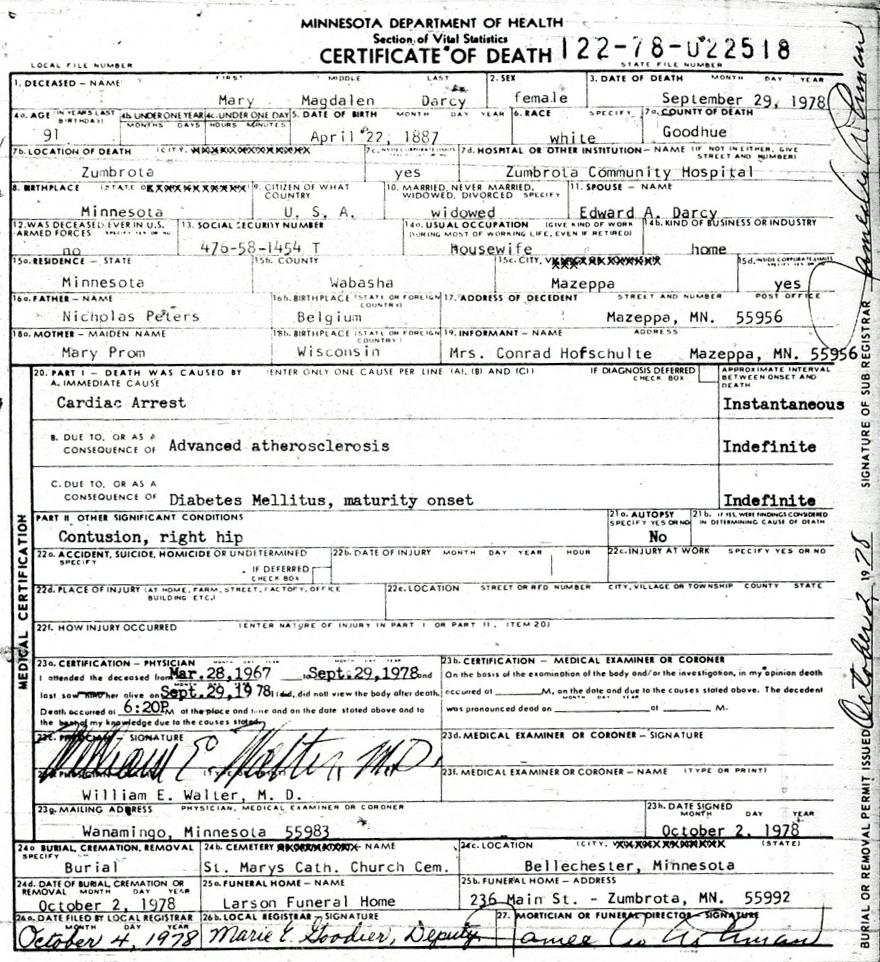 MINNESOTA DEPARTMENT OF HEALTH
Section of Vital Statistics
CERTIFICATE OF DEATH 122-78-022518
LOCAL FILE NUMBER STATE FILE NUMBER
1. DECEASED - NAME FIRST MIDDLE LAST 2. SEX 3. DATE OF DEATH MONTH DAY YEAR
Mary Magdalen Darcy female September 29, 1978
4a. AGE (IN YEARS LAST BIRTHDAY) 4b. UNDER ONE YEAR MONTHS DAYS 4c. UNDER ONE DAY HOURS MINUTES 5. DATE OF BIRTH MONTH DAY YEAR 6. RACE SPECIFY 7a. COUNTY OF DEATH
91 April 22, 1887 white Goodhue
7b. LOCATION OF DEATH (CITY, 7c. 7d. HOSPITAL OR OTHER INSTITUTION - NAME (IF NOT IN EITHER, GIVE STREET AND NUMBER)
Zumbrota yes Zumbrota Community Hospital
8. BIRTHPLACE (STATE 9. CITIZEN OF WHAT COUNTRY 10. MARRIED, NEVER MARRIED, WIDOWED, DIVORCED SPECIFY 11. SPOUSE - NAME
Minnesota U. S. A. widowed Edward A. Darcy
12. WAS DECEASED EVER IN U.S. ARMED FORCES SPECIFY YES OR NO 13. SOCIAL SECURITY NUMBER 14a. USUAL OCCUPATION (GIVE KIND OF WORK DURING MOST OF WORKING LIFE, EVEN IF RETIRED) 14b. KIND OF BUSINESS OR INDUSTRY
no 476-58-1454 T housewife home
15a. RESIDENCE - STATE 15b. COUNTY 15c. CITY, 15d. INSIDE CORPORATE LIMITS SPECIFY YES OR NO
Minnesota Wabasha Mazeppa yes
16a. FATHER - NAME 16b. BIRTHPLACE (STATE OR FOREIGN COUNTRY) 17. ADDRESS OF DECEDENT STREET AND NUMBER POST OFFICE
Nicholas Peters Belgium Mazeppa, MN. 55956
18a. MOTHER - MAIDEN NAME 18b. BIRTHPLACE (STATE OR FOREIGN COUNTRY) 19. INFORMANT - NAME ADDRESS
Mary Prom Wisconsin Mrs. Conrad Hofschulte Mazeppa, MN. 55956
20. PART I - DEATH WAS CAUSED BY (ENTER ONLY ONE CAUSE PER LINE (A), (B) AND (C)) IF DIAGNOSIS DEFERRED CHECK BOX APPROXIMATE INTERVAL BETWEEN ONSET AND DEATH
A. IMMEDIATE CAUSE
Cardiac Arrest Instantaneous
B. DUE TO, OR AS A CONSEQUENCE OF Advanced atherosclerosis Indefinite
C. DUE TO, OR AS A CONSEQUENCE OF Diabetes Mellitus, maturity onset Indefinite
PART II OTHER SIGNIFICANT CONDITIONS 21a. AUTOPSY SPECIFY YES OR NO 21b. IF YES, WERE FINDINGS CONSIDERED IN DETERMINING CAUSE OF DEATH
Contusion, right hip No
22a. ACCIDENT, SUICIDE, HOMICIDE OR UNDETERMINED SPECIFY IF DEFERRED CHECK BOX 22b. DATE OF INJURY MONTH DAY YEAR HOUR 22c. INJURY AT WORK SPECIFY YES OR NO
22d. PLACE OF INJURY (AT HOME, FARM, STREET, FACTORY, OFFICE BUILDING ETC.) 22e. LOCATION STREET OR RFD NUMBER CITY, VILLAGE OR TOWNSHIP COUNTY STATE
22f. HOW INJURY OCCURRED (ENTER NATURE OF INJURY IN PART I OR PART II, ITEM 20)
MEDICAL CERTIFICATION
23a. CERTIFICATION - PHYSICIAN MONTH DAY YEAR MONTH DAY YEAR
I attended the deceased from Mar. 28, 1967 to Sept. 29, 1978 and
last saw him/her alive on Sept. 29, 1978 I did, did not view the body after death.
Death occurred at 6:20P M. at the place and time and on the date stated above and to
the best of my knowledge due to the causes stated
23b. CERTIFICATION - MEDICAL EXAMINER OR CORONER
On the basis of the examination of the body and/or the investigation, in my opinion death
occurred at M, on the date and due to the causes stated above. The decedent
MONTH DAY YEAR
was pronounced dead on at M.
23c. PHYSICIAN - SIGNATURE 23d. MEDICAL EXAMINER OR CORONER - SIGNATURE
William E. Walter, M.D.
23f. MEDICAL EXAMINER OR CORONER - NAME (TYPE OR PRINT)
William E. Walter, M. D.
23g. MAILING ADDRESS PHYSICIAN, MEDICAL EXAMINER OR CORONER 23h. DATE SIGNED MONTH DAY YEAR
Wanamingo, Minnesota 55983 October 2, 1978
24a BURIAL, CREMATION, REMOVAL SPECIFY 24b. CEMETERY NAME 24c. LOCATION (CITY, (STATE)
Burial St. Marys Cath. Church Cem. Bellechester, Minnesota
24d. DATE OF BURIAL, CREMATION OR REMOVAL MONTH DAY YEAR 25a. FUNERAL HOME - NAME 25b. FUNERAL HOME - ADDRESS
October 2, 1978 Larson Funeral Home 236 Main St. - Zumbrota, MN. 55992
26a. DATE FILED BY LOCAL REGISTRAR MONTH DAY YEAR 26b. LOCAL REGISTRAR - SIGNATURE 27. MORTICIAN OR FUNERAL DIRECTOR - SIGNATURE
October 4, 1978 Marie E. Goodier, Deputy
BURIAL OR REMOVAL PERMIT ISSUED October 2 1978 SIGNATURE OF SUB REGISTRAR